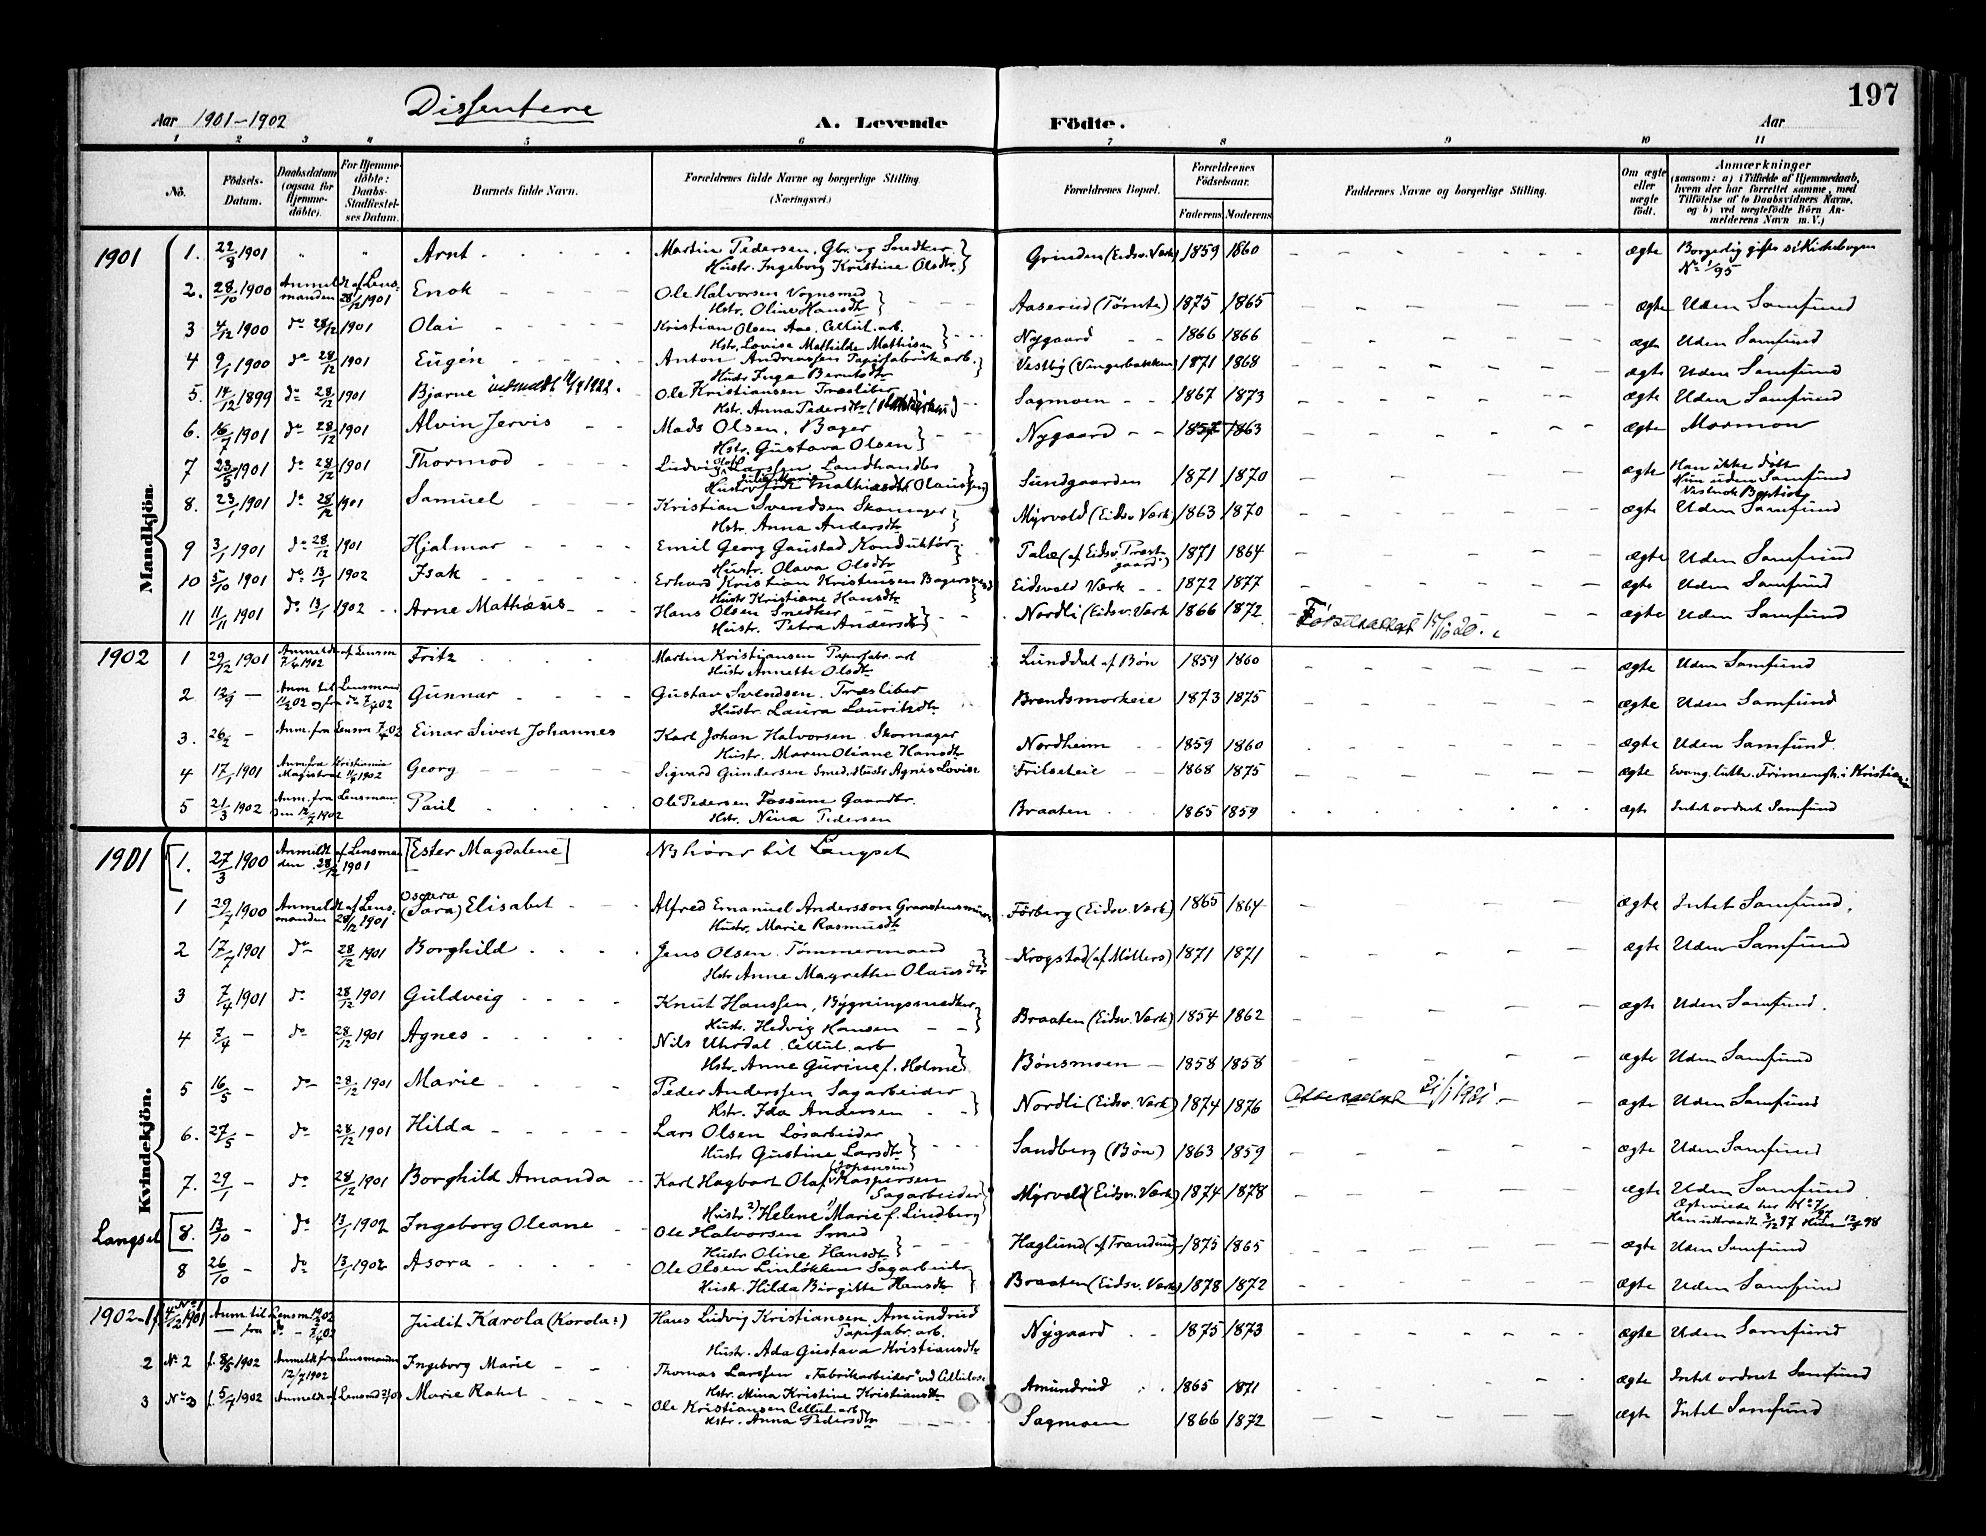 197
Aar 1901-1902 Dissentere A. Levende Födte. Aar
1 2 3 4 5 6 7 8 9 10 11
Nö. Födsels-Datum. Daabsdatum (ogsaa for Hjemme-döbte). For Hjemme-döbte: Daabs-Stadfæstel-ses Datum. Barnets fulde Navn. Forældrenes fulde Navne og borgerlige Stilling. (Næringsvei.) Forældrenes Bopæl. Forældrenes Födselsaar. Faderens Moderens Faddernes Navne og borgerlige Stilling. Om ægte eller uægte födt. Anmærkninger (saasom: a) i Tilfælde af Hjemmedaab, hvem der har forrettet samme, med Tilföielse af to Daabsvidners Navne, og b) ved uægtefödte Börn An-melderens Navn m. V.)
Mandkjön.
1901 1. 22/8 1901 " " Arnt Martin Pedersen, Gbr. og Snedker Grinden (Eidsv. Værk) 1859 1860 ægte Borgerlig gifte s. Kirkebogen
Hustr. Ingeborg Kristine Olsdtr No 1/95
2. 28/10 1900 Anmeldt af Lens-manden 28/12 1901 Enok Ole Halvorsen Vognsmed Aaserud (Tømte) 1875 1865 ægte Uden Samfund
Hstr. Oline Hansdtr
3 4/12 1900 do 28/12 1901 Olai Kristian Olsen Aae. Cellul. arb. Nygaard 1866 1866 ægte Uden Samfund
Hstr. Lovise Mathilde Mathisen
4 9/1 1900 do 28/12 1901 Eugén Anton Andreassen Papirfabrik arb. Vestby (Vingerbakken) 1871 1868 ægte Uden Samfund
Hustr Inga Berntsdtr
5. 14/12 1899 do 28/12 1901 Bjarne Ole Kristiansen Træsliber Sagmoen 1867 1873 ægte Uden Samfund
Hstr. Anna Pedersdtr
6. 16/7 1901 do 28/12 1901 Alvin Jervis Mads Olsen, Bager Nygaard 1857 1863 ægte Mormon
Hstr. Gustava Olsen
7 23/5 1901 do 28/12 1901 Thormod Ludvig Larssen Landhandler Sundgaarden 1871 1870 ægte Han ikke döbt
Hun uden Samfund
8. 23/1 1901 do 28/12 1901 Samuel Kristian Svendsen Skomager Myrvold (Eidsv. Værk) 1863 1870 ægte Uden Samfund
Hstr. Anna Andersdtr
9 3/1 1901 do 28/12 1901 Hjalmar Emil Georg Gaustad Konduktør Palæ (af Eidsv. Præst-gaard) 1871 1864 ægte Uden Samfund
Hustr. Olava Olsdtr
10 5/10 1901 do 13/1 1902 Isak Erhard Kristian Kristiansen Bagersvend Eidsvold Værk 1872 1877 ægte Uden Samfund
Hustr Kristiane Hansdtr
11 11/11 1901 do 13/1 1902 Arne Mathæus Hans Olsen Snedker Nordli (Eidsv. Værk 1866 1872 ægte Uden Samfund
Hustr. Petra Andersdtr
1902 1 29/12 1901 Anmeldt af Lensm 7/4 1902 Fritz Martin Kristiansen Papirfabr. arb Lunddal af Bøn 1859 1860 ægte Uden Samfund
Hustr Annette Olsdtr
2 12/9 — Anm til Lensmand Gunnar Gustav Svendsen. Træsliber Brendsmorkeie 1873 1875 ægte Uden Samfund
Hustr. Laura Lauritzdtr
3. 26/2 — Anm. fra Lensm 7/4 02 Einar Sivert Johannes Karl Johan Halvorsen Skomager Nordheim 1859 1860 ægte Uden Samfund.
Hustr. Maren Oliane Hansdtr
4 17/1 1901 Anm fra Kristiania Magistrat 11/4 1902 Georg Sigvard Gundersen Smed. Hustr Agnes Lovise Frilseteie 1868 1875 ægte Evang. luth. Frimenigh. i Kristiania
5 21/3 1902 Anm. fra Lensman. den 12/7 1902 Paul Ole Pedersen Fossum Gaardbr. Braaten 1865 1859 ægte Intet ordnet Samfund
Hstr. Nina Pedersen
Kvindekjön.
1901 [1. 27/3 1900 Anmeldt af Lensman den 28/12 1901 [Ester Magdalene] NB hører til Langset
1 29/7 1900 Anmeldt af Lens-manden 28/12 1901 Oscara (Sara) Elisabet Alfred Emanuel Andersson Graastensmurer Førberg (Eidsv. Værk) 1865 1864 ægte Intet Samfund.
Hustr. Marie Rasmusdtr
2 17/7 1901 do 28/12 1901 Borghild Jens Olsen Tømmermand Krogstad (af Møllers) 1871 1871 ægte Uden Samfund
Hstr Anne Magrethe Olausdtr
3 7/4 1901 do 28/12 1901 Guldveig Knut Hanssen, Bygningssnedker Braaten (Eidsv. Værk) 1854 1862 ægte Uden Samfund.
Hustr. Hedvig Hansen
4 7/4 — do 28/12 1901 Agnes Nils Uhrdal Cellul. arb Bønsmoen 1858 1858 ægte Uden Samfund
Hstr. Anne Gurine f. Holme
5 16/5 — do 28/12 1901 Marie Peder Anderssen Sagarbeider Nordli (Eidsv. Værk) 1874 1876 21/1 1921 ægte Uden Samfund
Hstr. Ida Andersen
6. 27/5 — do 28/12 1901 Hilda Lars Olsen Løsarbeider Sandberg (Bøn) 1863 1859 ægte Uden Samfund
Hustr Gustine Larsdtr
7. 29/1 — do 28/12 1901 Borghild Amanda Karl Hagbart Olaf Kaspersen Sagarbeider Myrvold (Eidsv. Værk) 1874 1878 ægte Uden Samfund
Hustr. 2) Helene Marie f. Lindberg
Langset [8. 13/10 — do 13/1 1902 Ingeborg Oleane Ole Halvorsen Smed Hæglund (af Trandum) 1875 1865 ægte Uden Samfund
Hustr Oline Hansdtr
8 26/10 — do 13/1 1902 Asora Ole Olsen Linløkken Sagarbeider Braaten (Eidsv. Værk) 1878 1872 ægte Uden Samfund
Hustr. Hilda Birgitte Hansdtr
1902 - 1 No 1 4/12 1901 Anm. til Lensm Judit Karola (Korola:) Hans Ludvig Kristiansen Amundrud Nygaard 1875 1873 ægte Uden Samfund
Papirfabr. arb.
Hustr. Ada Gustava Kristiansdtr
2 No 2 f. 8/5 1902 Anmeldt fra Lensmanden 12/7 1902 Ingeborg Marie Thomas Larssen "Fabrikarbeider" ved Cellulose Amundrud 1865 1871 ægte Intet ordnet Samfund
Hstr. Mina Kristine Kristiansdtr
3 No 3 f. 5/7 1902 Anmeldt af Lensmd Marie Rakel Ole Kristiansen Cellul. arb. Sagmoen 1866 1872 ægte Intet Samfund
Hstr. Anna Pedersdtr